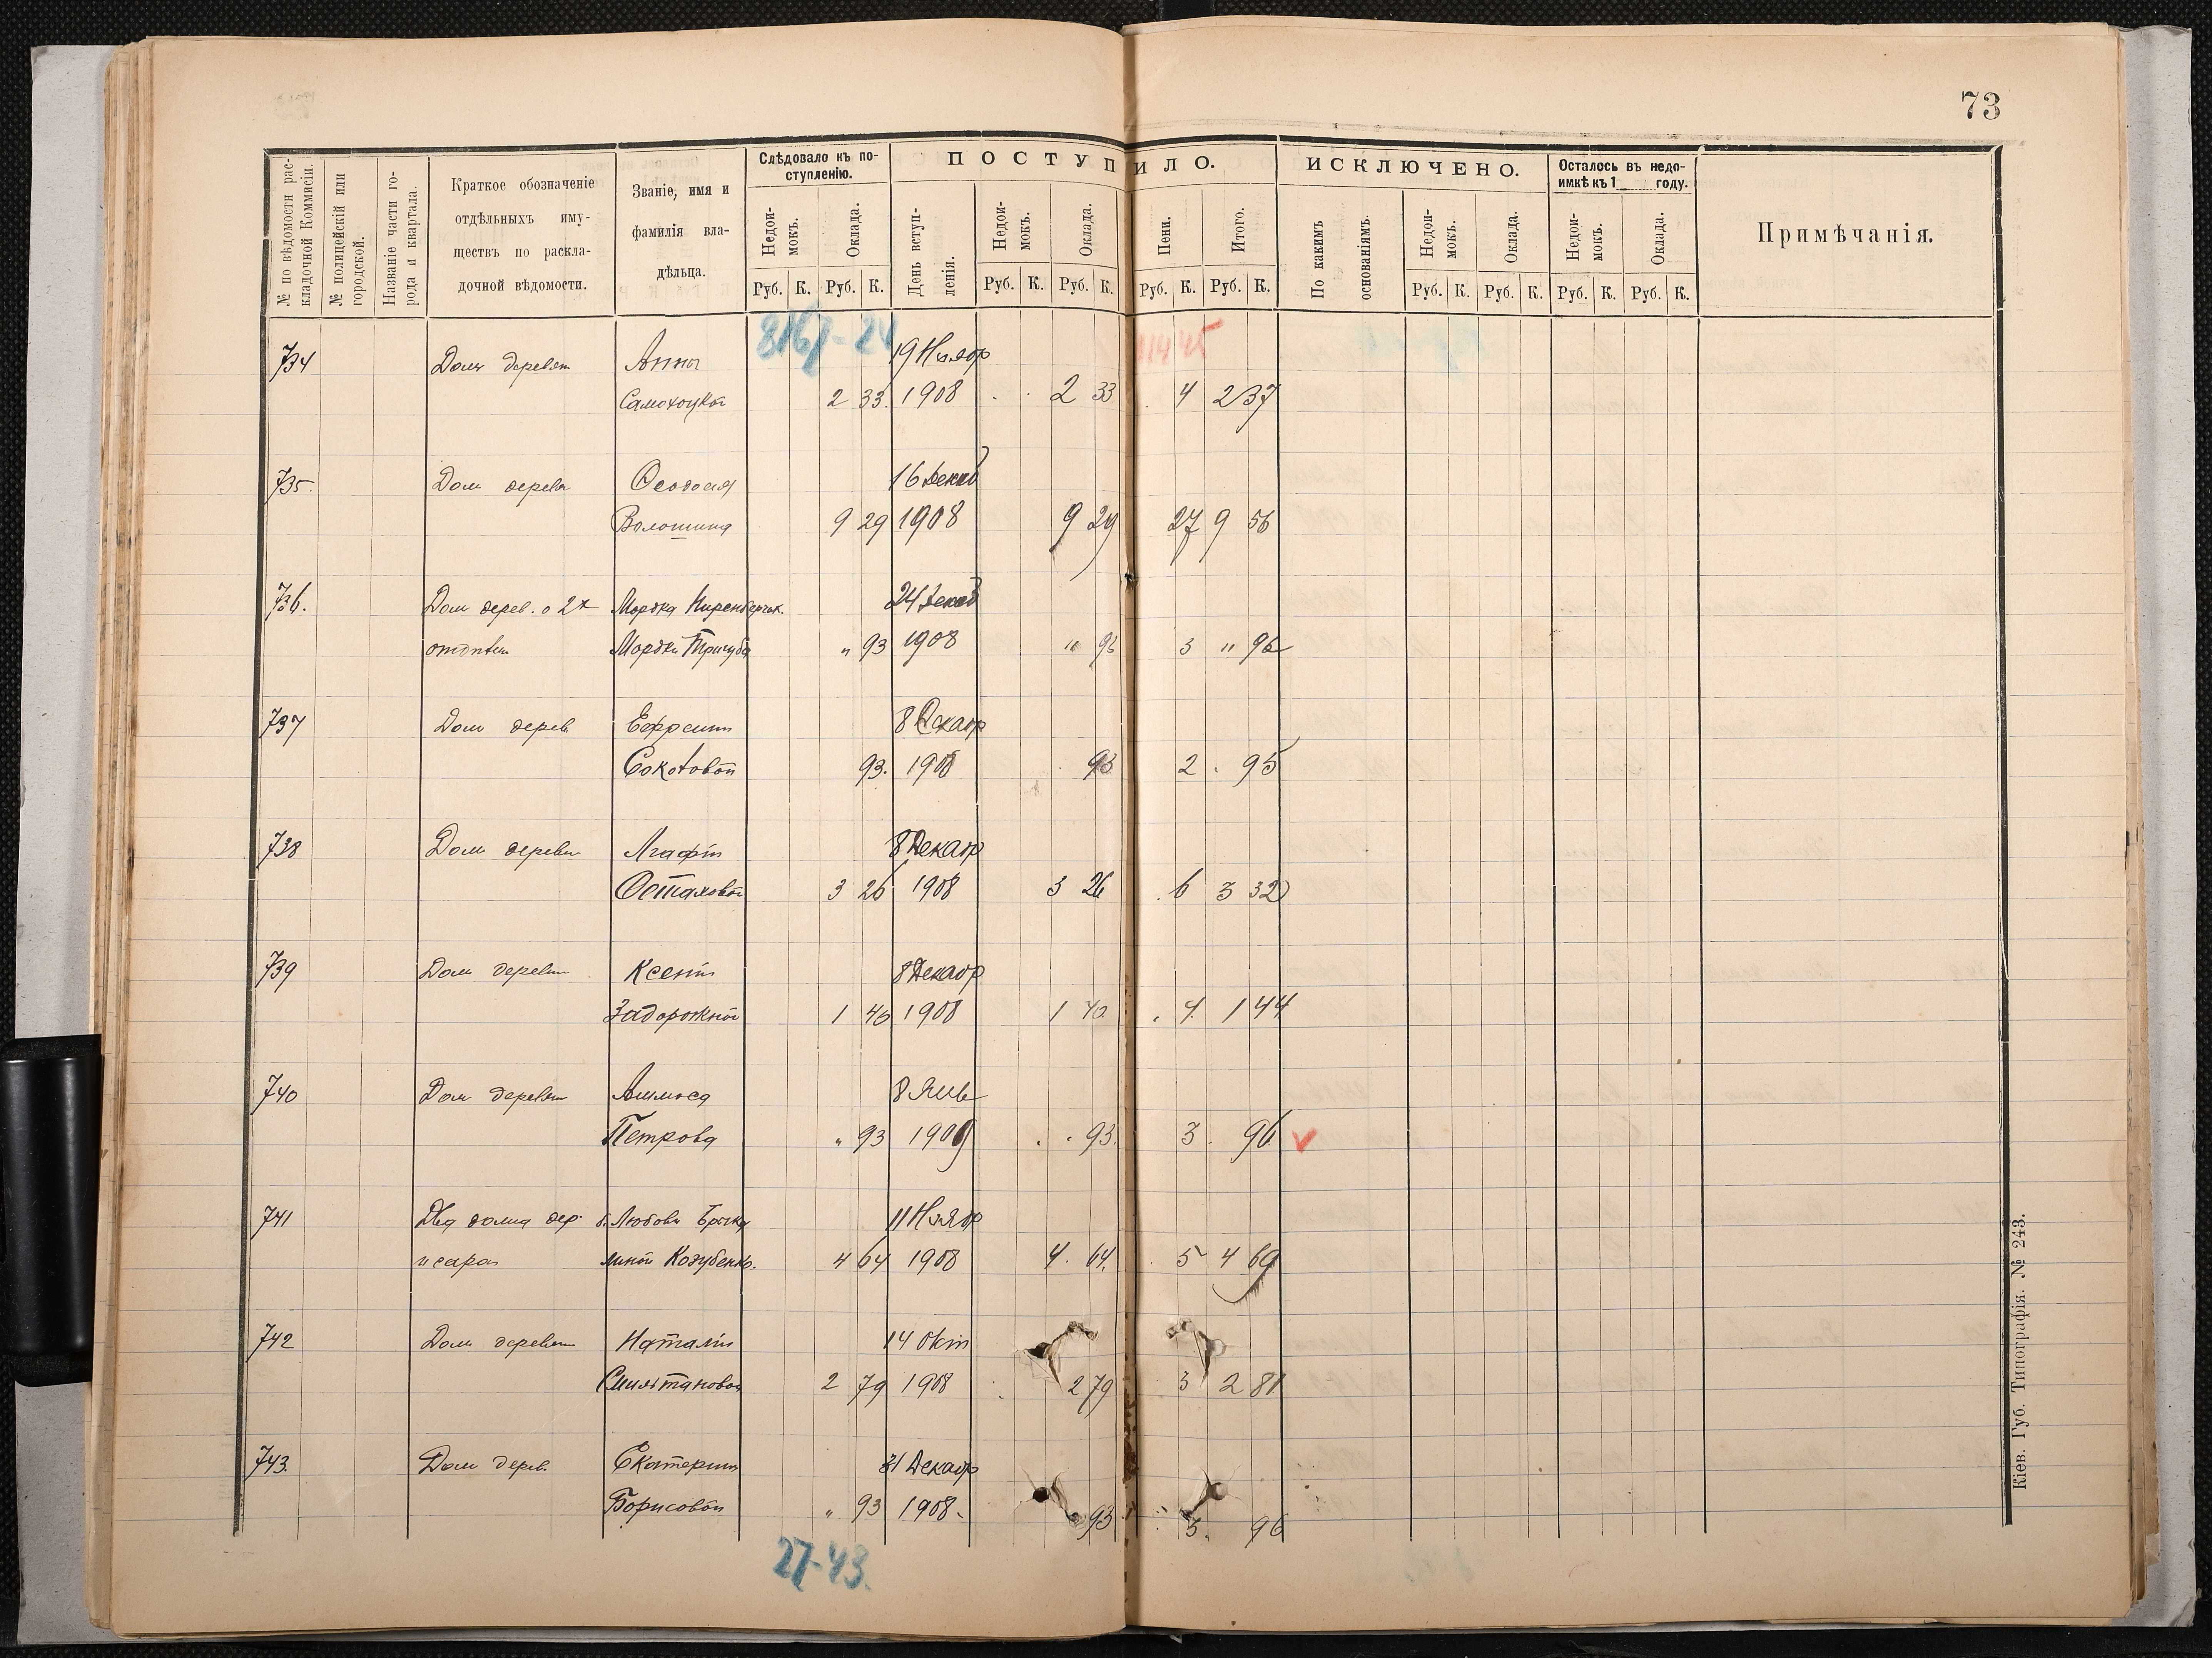 73
№ по вѣдомости раскладочной Коммисіи.
№ полицейскій или городской.
Названіе части города и квартала.
Краткое обозначеніе
отдѣльныхъ иму-
ществъ по раскла-
дочной вѣдомости.
Званіе, имя и
фамилія вла-
дѣльца.
Слѣдовало къ по-
ступленію.
Недои-
мокъ.
Оклада.
ПОСТУПИЛО.
День вступ-
ленія.
Недои-
мокъ.
Оклада.
Пени.
Итого.
ИСКЛЮЧЕНО.
По какимъ
основаніямъ.
Недои-
мокъ.
Оклада.
Осталось въ недо-
имкѣ къ 1 году.
Недои-
мокъ.
Оклада.
Примѣчанія.
Руб. К. Руб. К. Руб. К. Руб. К. Руб. К. Руб. К. Руб. К. Руб. К. Руб. К. Руб. К.
734 Домъ деревян Анны 19 Ноябр
2 33 1908 2 33 4 2 37
735. Дом дерев Ѳеодосія 16 Декаб
Волошина 9 29 1908 9 29 27 9 56
736. Дом дерев. о 2х Мордка 24 Декаб
Мордки Тригуба " 93 1908 " 93 3 " 96
737 Дом дерев Ефросин 8 Декабр
93. 1908 93 2 . 95
738 Дом дерев Агафіи 8 Декабр
3 26 1908 3 26 6 3 32
739 Дом деревян Ксеніи 8 Декабр
Задорожной 1 40 1908 1 40 4. 1 44
740 Дом деревян 8 Янв
Петрова " 93 1909 93. 3 96
741 Два дома дер. Любови 11 Ноябр
и сарай Козубенко. 4 64 1908 4. 64. 5 4 69
742 Дом деревян Наталіи 14 Окт
2 79 1908 2 79 3 2 81
743. Дом дерев. Екатерины 31 Декабр
Борисовой " 93 1908. 93 3. 96
27-43.
Кіев. Губ. Типографія. № 243.